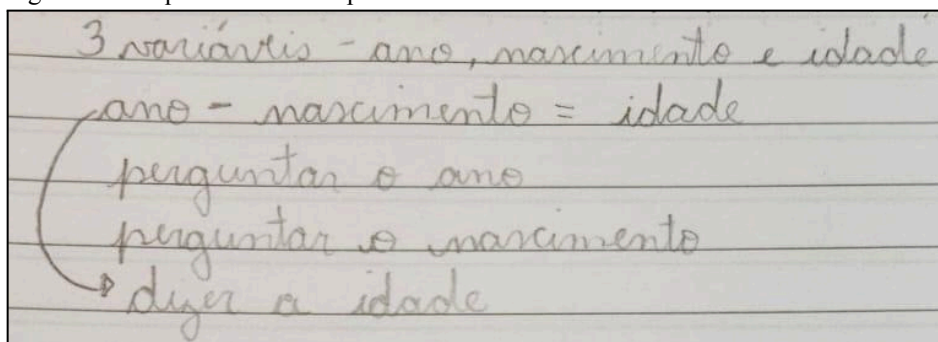 3 variáveis - ano, nascimento e idade
ano - nascimento = idade
perguntar o ano
perguntar o nascimento
dizer a idade